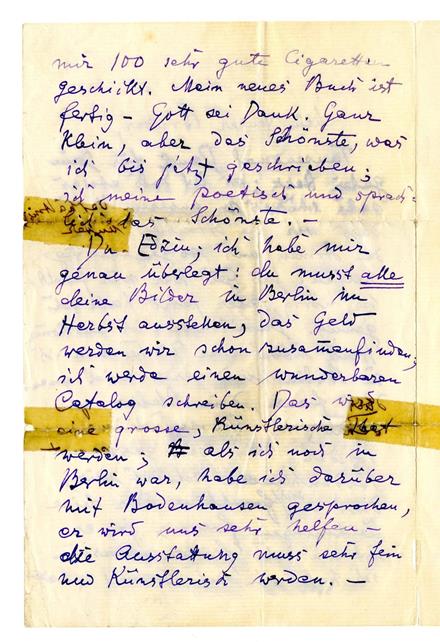 mir 100 sehr gute Cigaretten
geschickt. Mein neues Buch ist
fertig – Gott sei Dank. Ganz
klein, aber das Schönste, was
ich bis jetzt geschrieben;
ich meine poetisch und sprach-
das Schönste. –
Du Edzin; ich habe mir
genau überlegt: du musst alle
deine Bilder in Berlin im
Herbst ausstellen, das Geld
werden wir schon zusammenfinden;
ich werde einen wunderbaren
Catalog schreiben. Das wird
eine grosse, Künstlerische
werden; als ich noch in
Berlin war, habe ich darüber
mit Bodenhausen gesprochen,
er wird uns sehr helfen –
die Ausstattung muss sehr fein
und Künstlerisch werden. –